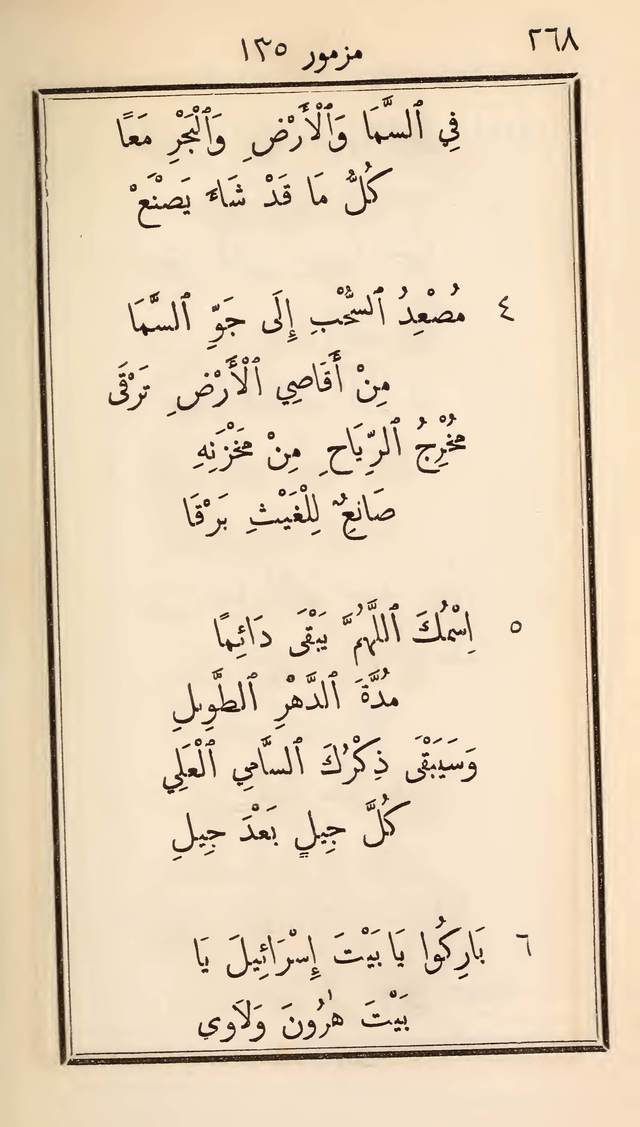 ٢٦٨
مزمور ١٣٥
فِي ٱلسَّمَا وَٱلْأَرْضِ وَٱلْبَحْرِ مَعًا
كُلُّ مَا قَدْ شَاءَ يَصْنَعْ
٤ مُصْعِدُ ٱلسُّحْبِ إِلَى جَوِّ ٱلسَّمَا
مِنْ أَقَاصِي ٱلْأَرْضِ تَرْقَى
مُخْرِجُ ٱلرِّيَاحِ مِنْ مَخْزَنِهِ
صَانِعٌ لِلْغَيْثِ بَرْقَا
٥ اِسْمُكَ ٱللَّهُمَّ يَبْقَى دَائِمًا
مُدَّةَ ٱلدَّهْرِ ٱلطَّوِيلِ
وَسَيَبْقَى ذِكْرُكَ ٱلسَّامِي ٱلْعَلِي
كُلَّ جِيلٍ بَعْدَ جِيلِ
٦ بَارِكُوا يَا بَيْتَ إِسْرَائِيلَ يَا
بَيْتَ هٰرُونَ وَلَاوِي